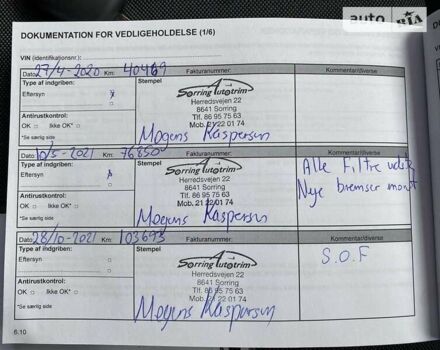 auto RIA
DOKUMENTATION FOR VEDLIGEHOLDELSE (1/6)
VIN (identifikationsnr.):
Dato 27/4-2020 Km: 40469 Fakturanummer: Kommentar/diverse
Type af indgriben: Stempel
Eftersyn
Sorring Autotrim
Herredsvejen 22
8641 Sorring
Tlf. 86 95 75 63
Mob. 21 22 01 74
Antirustkontrol:
OK Ikke OK*
*Se særlig side
Mogens Kaspersen
Dato 10/5-2021 Km: 76850 Fakturanummer: Kommentar/diverse
Type af indgriben: Stempel
Eftersyn
Sorring Autotrim
Herredsvejen 22
8641 Sorring
Tlf. 86 95 75 63
Mob. 21 22 01 74
Alle Filtre
Nye bremser
Antirustkontrol:
OK Ikke OK*
*Se særlig side
Mogens Kaspersen
Dato 28/10-2021 Km: 103693 Fakturanummer: Kommentar/diverse
Type af indgriben: Stempel
Eftersyn
Sorring Autotrim
Herredsvejen 22
8641 Sorring
Tlf. 86 95 75 63
Mob. 21 22 01 74
S.O.F
Antirustkontrol:
OK Ikke OK*
*Se særlig side
Mogens Kaspersen
6.10